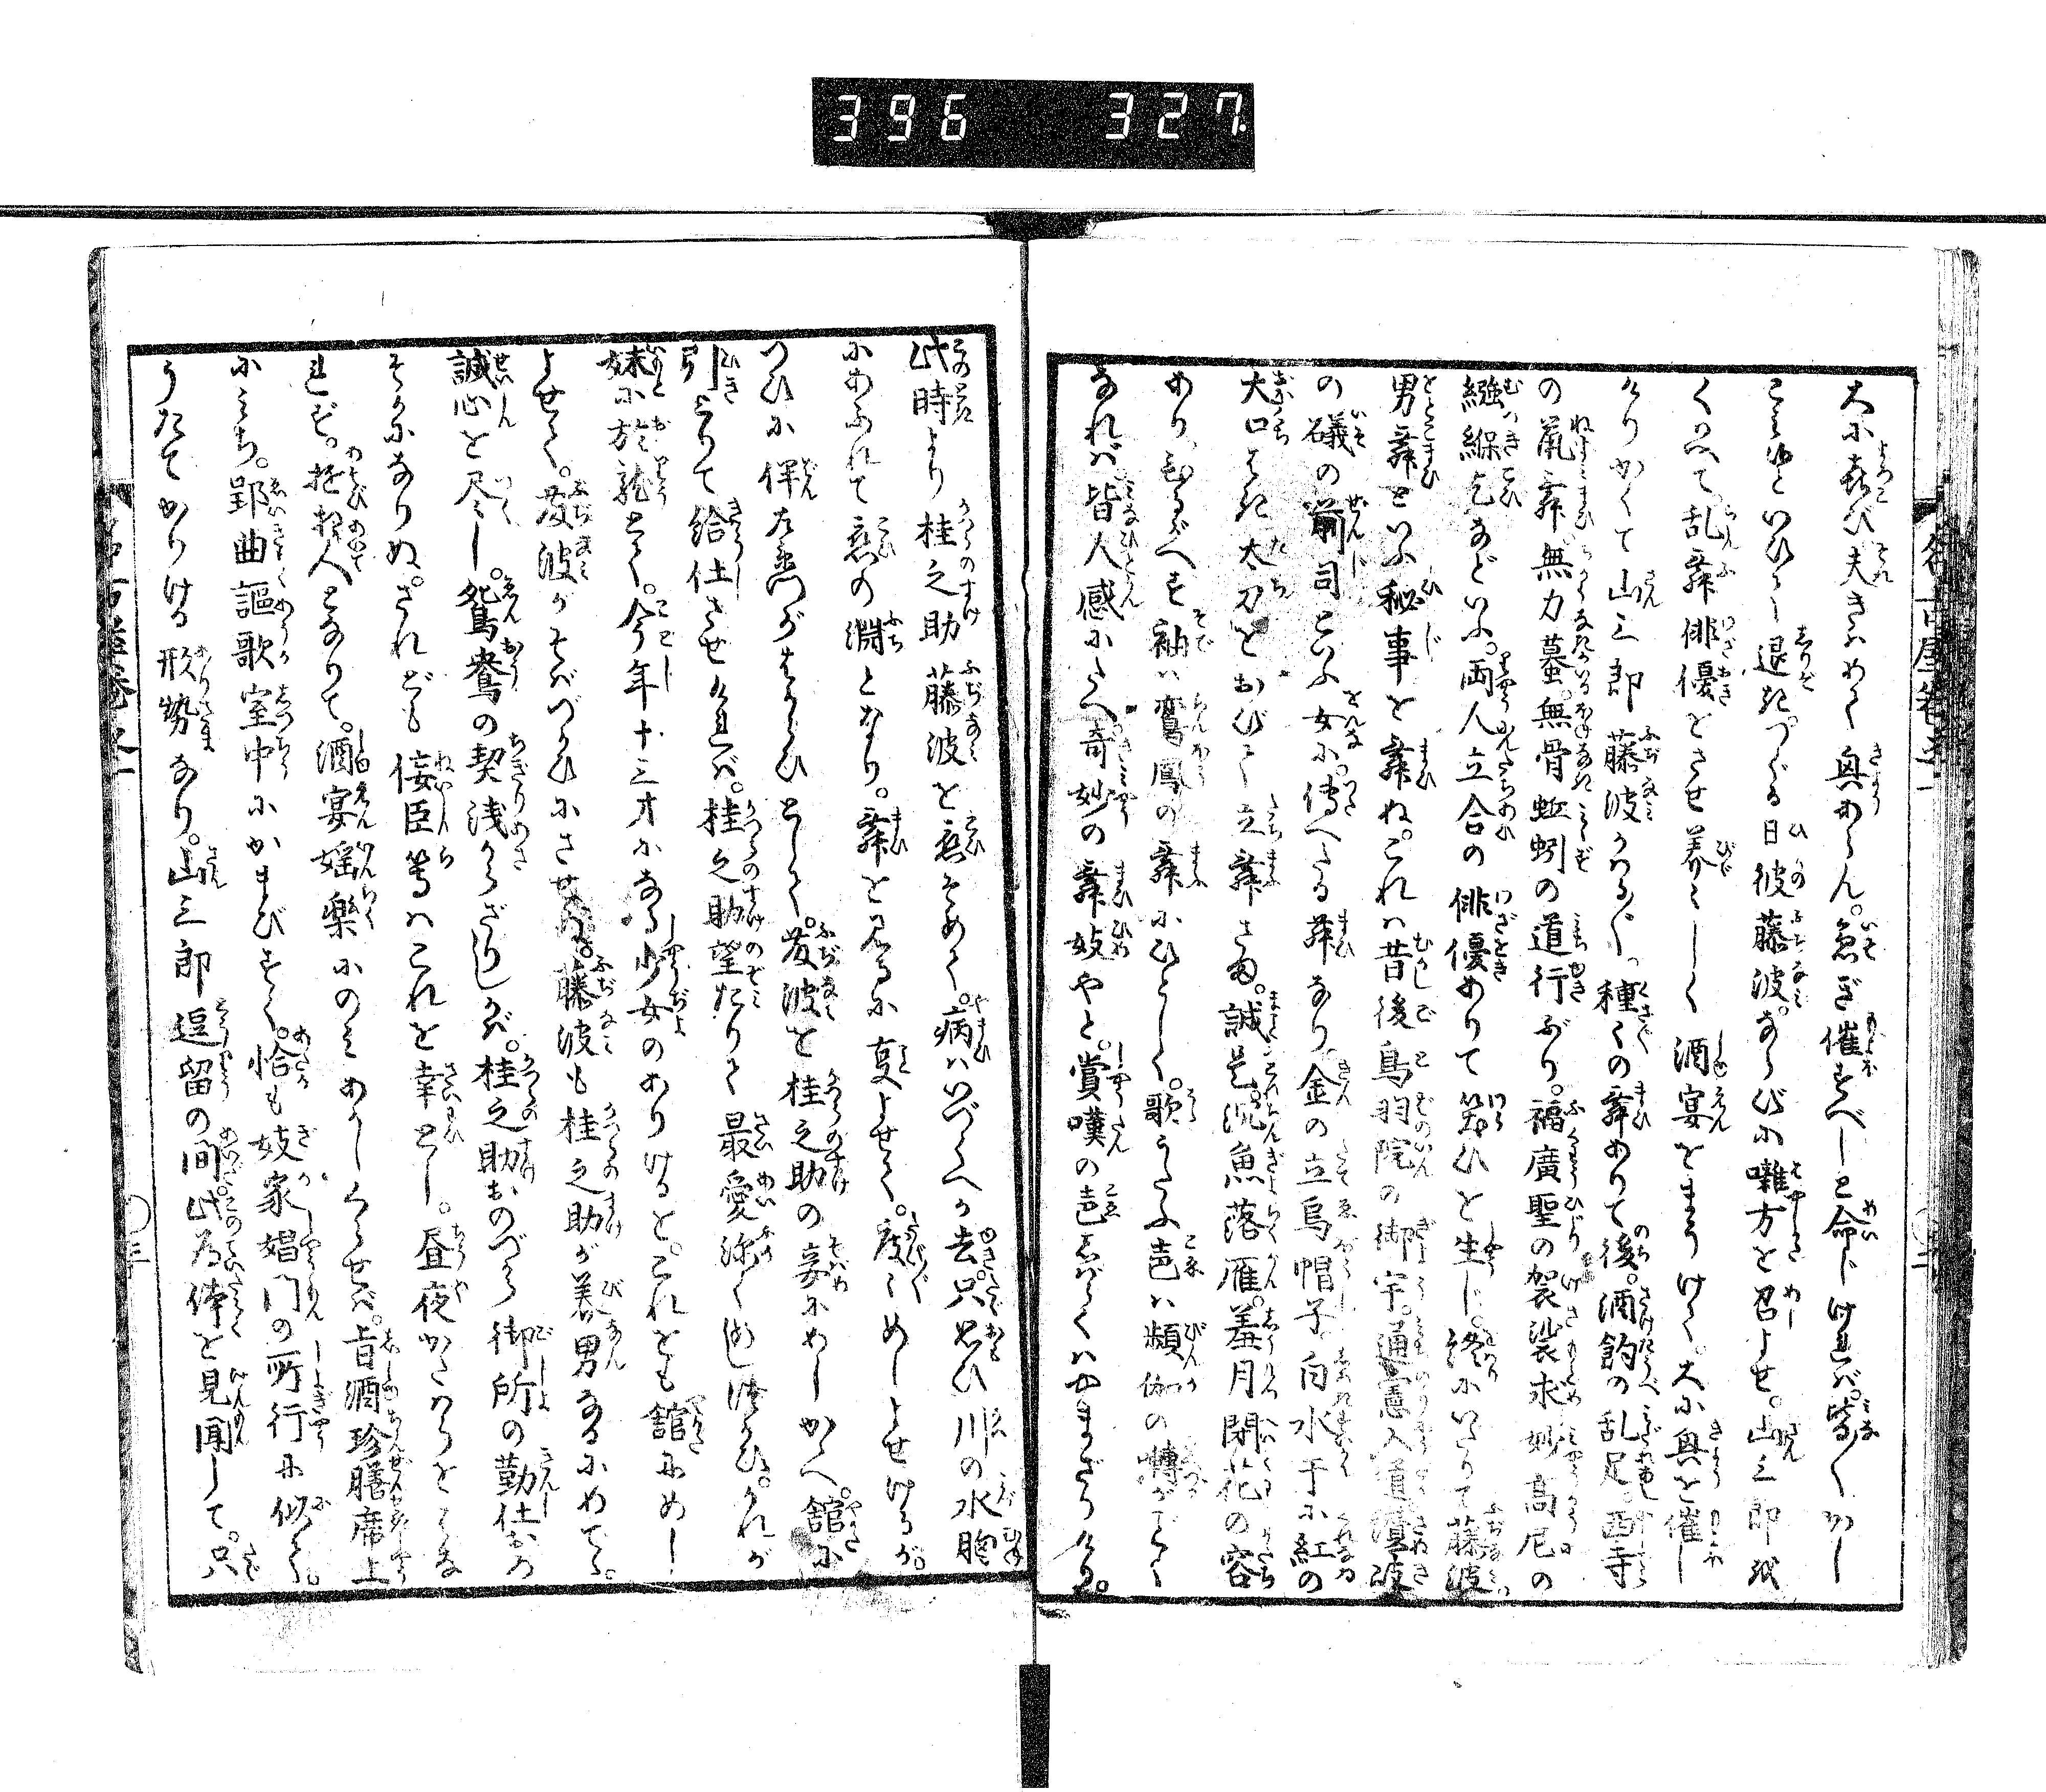 396 327.
大に喜び夫きはめて興あらん。急ぎ催すべしと命じければ。皆〳〵かし
こみ候といひて退きつぐる日彼藤波。ならびに囃方を召よせ。山三郎紙
くはへて乱舞俳優をさせ善美〻しく酒宴をまうけて。大に興を催し
けりかくて山三郎藤波かはる〴〵種〻の舞ありて後。酒飽の乱足。西寺
の鼠舞無力蟇。無骨蚯蚓の道行ぶり。福廣聖の袈裟求妙高尼の
繦緥乞などいふ。両人立合の俳優ありて笑ひを生じ。終にいたりて藤波
男舞といふ秘事を舞ぬ。これは昔後鳥羽院の御宇。通憲入道讃岐
の礒の前司といふ女に。傳へたる舞なり金の立烏帽子。白水干に紅の
大口はき太刀をおびて立舞さま。誠是沉魚落雁。羞月閉花の容
あり。ひるがへす袖は鸞鳳の舞にひとしく。歌うたふ声は頻伽の囀がごとく
なれば。皆人感にたへ奇妙の舞妓やと。賞嘆の声しばらくはやまざりける。
此時より桂之助藤波を恋そめて。病はいづくへか去。只思ひ川の水胸
にあふれて恋の淵となり。舞を見るに事よせて。度〻めしよせけるが。
つひに伴左衛門がはからひとして。藤波を桂之助の妾にめしかかへ。舘に
引とりて給仕させければ。桂之助望たりて最愛深く過けり。かれが
妹に於龍とて。今年十三才になる少女のありけると。これをも舘にめし
よせて。藤波がそばづかひにさせぬ。藤波も桂之助が美男なるにめでゝ。
誠心を尽し。鴛鴦の契浅からざりしかば。桂之助おのづから御所の勤仕おろ
そかになりぬ。されども佞臣等はこれを幸とし。昼夜かたはらをはな
れず。遊散人となりて。酒宴婬楽にのみあかしくらせば。旨酒珍膳席上
にみち。郢曲謳歌室中にかまびすく。恰も妓家娼門の所行に似て。
うたてかりける形勢なり。山三郎逗留の間。此為体を見聞して。只